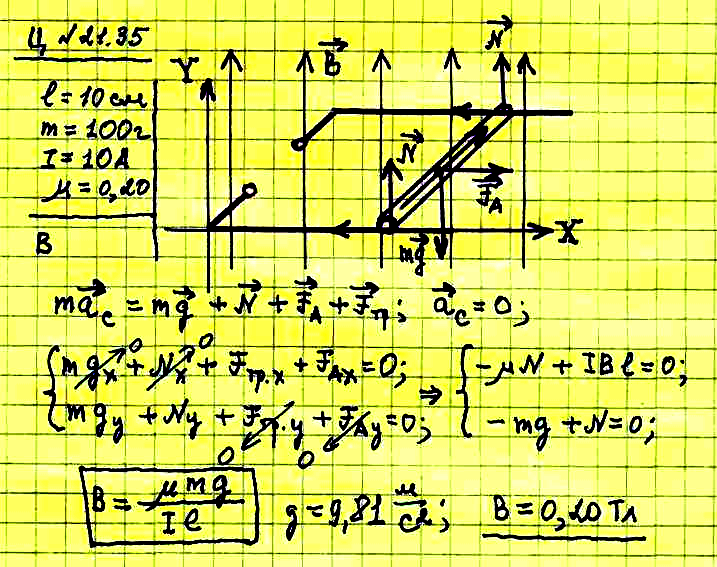 Ц №21.35
l = 10 см
m = 100г
I = 10А
μ = 0,20
B
Y B⃗ N⃗
N⃗ F⃗_A
mg⃗ X
ma⃗_c = mg⃗ + N⃗ + F⃗_A + F⃗_тр; a⃗_c = 0;
mg_x + N_x + F_тр.x + F_Ax = 0; ⇒ -μN + IBl = 0;
0 0
mg_y + N_y + F_тр.y + F_Ay = 0; -mg + N = 0;
0 0
B = μmg / Il g = 9,81 м/с2; B = 0,20 Тл